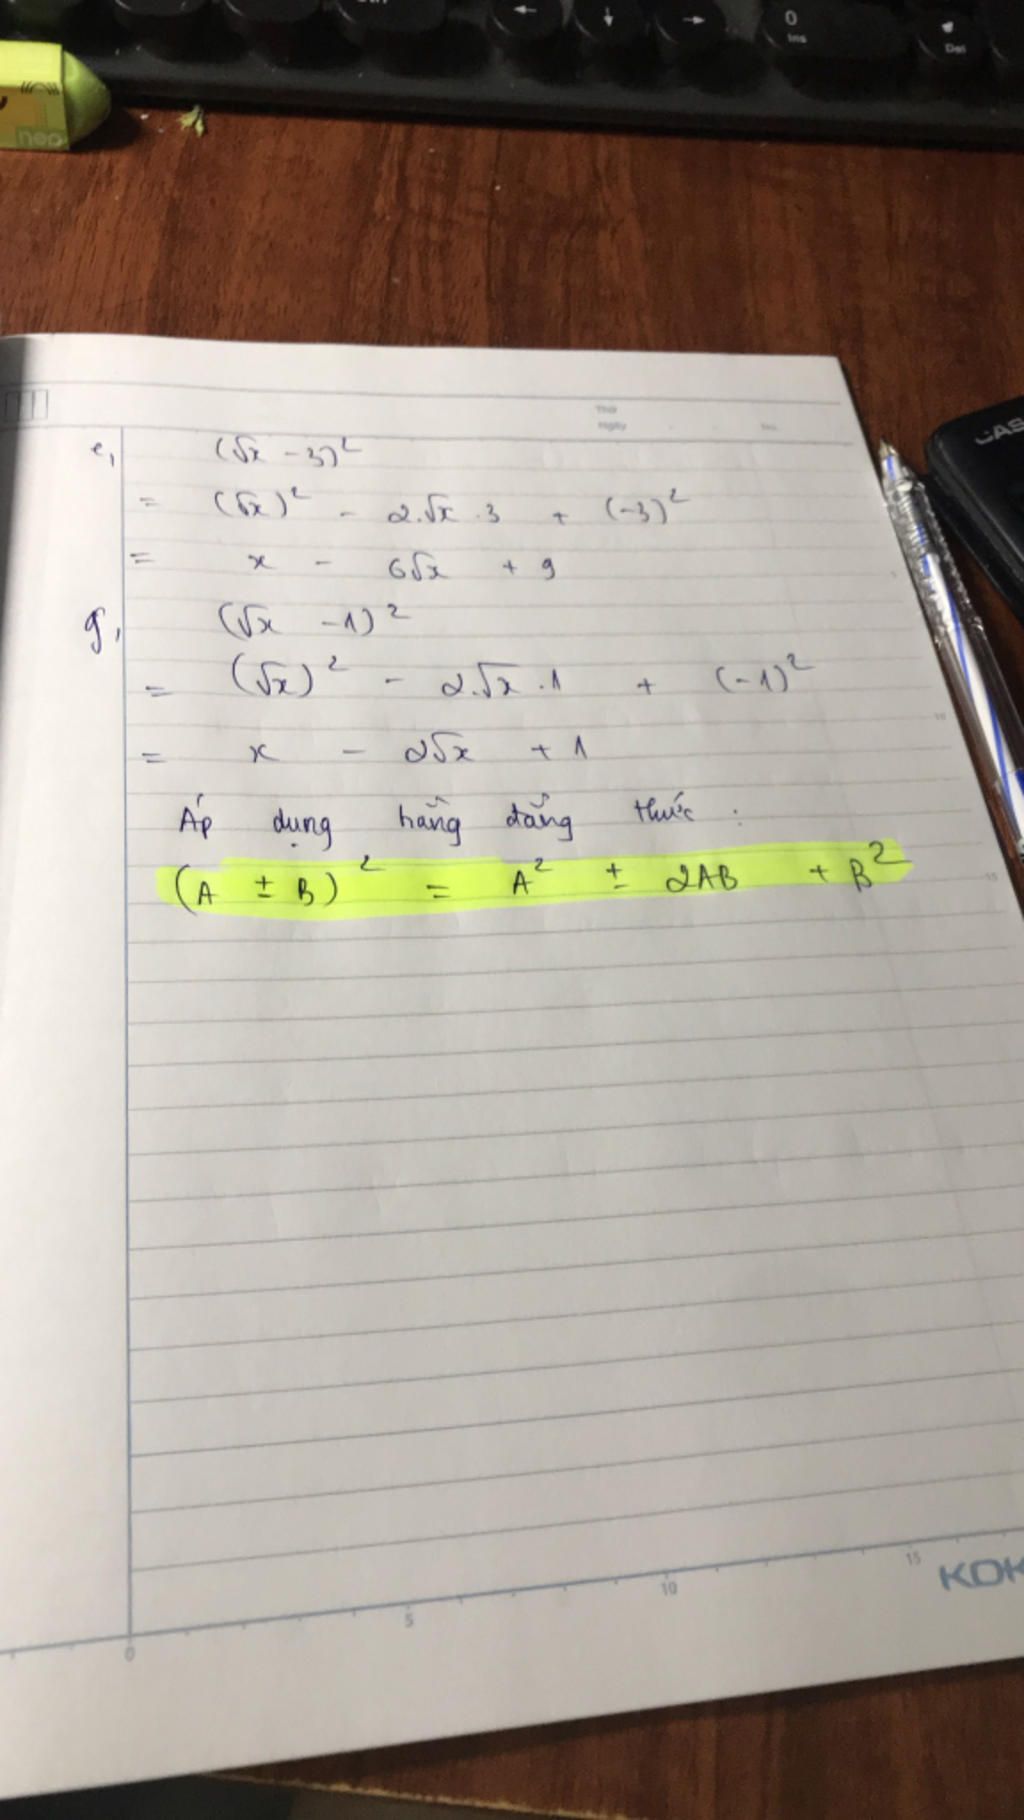 0
Ins
Del
neo
CAS
Thứ
Ngày
No.
e, (√x - 3)²
= (√x)² - 2.√x.3 + (-3)²
= x - 6√x + 9
g, (√x - 1)²
= (√x)² - 2.√x.1 + (-1)²
= x - 2√x + 1
Áp dụng hằng đẳng thức :
(A ± B)² = A² ± 2AB + B²
10
15
0 5 10 15
KOK